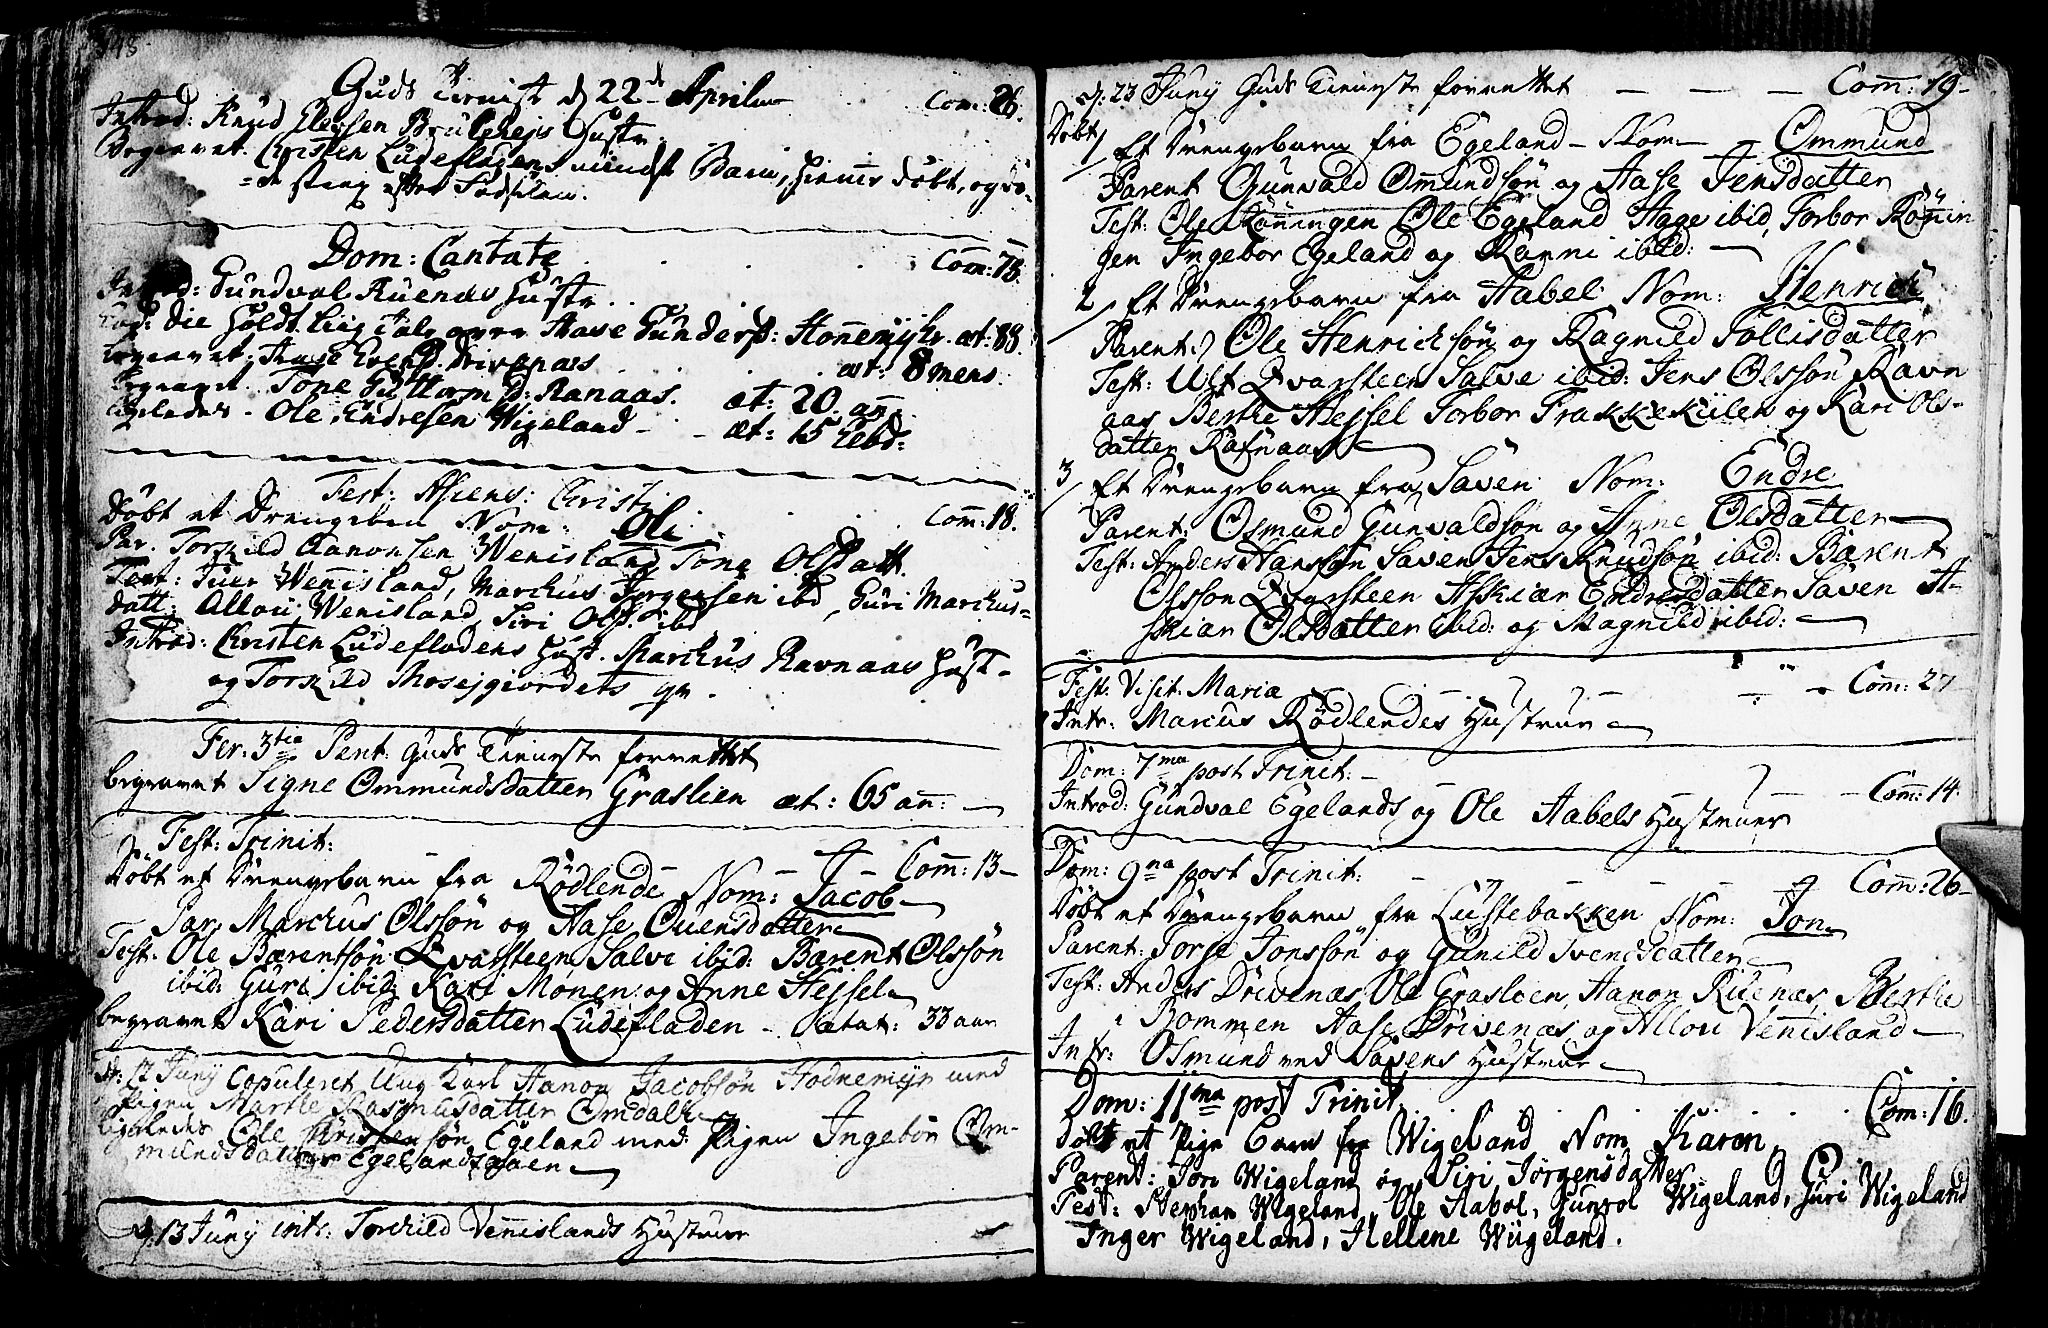 148
Guds Tienist d 22de April Com: 26.
Introd: Knud Ellefsen Brulsheys Hustr
Begravet. Christen Ludefladens mindst Barn, hiemme döbt, og dö-
=de strax efter Daaben.
Dom: Cantate Com: 75.
Introd: Gundval Ruenæs Hustr.
holdt Liig Tale over Aase Gundersd: Honnemyhr. æt: 88.
begravet. Aase Evensd. Drivenæs æt: 8 mens.
begravet. Tone Guttormsd: Ranaas. æt: 20. an.
ligeledes - Ole Endresen Wigeland - æt: 15 Ebd:
Fest: Ascens: Christi. Com: 18.
Döbt et Drengebn Nom: Ole.
Par. Torkild Aanonsen Wenisland, Tone Olsdatt.
Test: Iver Wenisland, Marchus Jørgensen ibd, Guri Marchus-
datt: Allou Wenisland, Siri Olsd. ibd
Introd: Christen Ludefladens Hust. Marchus Ravnaas Hust-
og Torkild Mosejgiordets qv.
Fer: 3tia Pent: Guds Tieneste forrettet
begravet Signe Ommundsdatter Graslien æt: 65 an:
Fest: Trinit: Com: 13-
Döbt et Drengebarn fra Rödlende Nom: Jacob
Par: Marchus Olssön og Aase Ouensdatter
Test: Ole Bærentsön Qvarsteen Salve ibid: Bærent Olssön
ibid: Guri ibid: Kari Monen og Anne Hejsel
begravet Kari Pedersdatter Ludefladen - ætat: 33 aar
d: 12 Juny Copuleret Ung Karl Aanon Jacobsön Hodnemyr med
Pigen Marthe Rasmusdatter Omdal
ligeledes Ole Christensön Egeland med Pigen Ingebor Om-
mundsdatter Egelandsaaen
d: 13 Juny intr: Torkild Vennislands Hustrue
d: 23 Juny Guds Tieneste forrettet - - - Com: 19-
Döbt 1/ Et Drengebarn fra Egeland - Nom - Ommund
Parent Gunvald Omundsön og Aase Jensdatter
Test: Ole Rönningen Ole Egeland Aage ibid, Torbor Rönnin
gen Ingebor Egeland og Ranni ibid:
2/ Et Drengebarn fra Aabel Nom: Henrich
Parent: Ole Henrichsön og Ragnild Tollisdatter
Test: Ulf Qvarsteen Salve ibid: Jens Olssön Ravn
aas Berthe Hejsel Torbor Frakkekiilen og Kari Ols-
datter Rafnaas
3/ Et Drengebarn fra Saven Nom: Endre
Parent: Osmund Gunvaldsön og Anne Olsdatter
Test: Anders Hanssön Saven Jens Knudsön ibid: Bærent
Olsson Qvarsteen Askiær Endresdatter Saven A-
skiær Olsdatter ibid: og Magnild ibid:
Fest: Visit. Mariæ Com: 27
Intr: Marcus Rödlendes Hustrue
Dom: 7ma post Trinit: - Com: 14.
Introd: Gundval Egelands og Ole Aabels Hustruer
Dom: 9na post Trinit: Com: 26-
Döbt et Drengebarn fra Lustebakken Nom: Jon
Parent: Torje Jonssön og Gunild Svensdatter
Test: Anders Drivenæs, Ole Graslien, Aanon Ruenæs, Berthe
Bommen Aase Drivenæs og Allou Vennisland
Intr: Osmund ved Savens Hustrue
Dom: 11ma post Trinit. Com: 16.
Döbt et Pige Barn fra Wigeland Nom Karen
Parent: Jörn Wigeland og Siri Jörgensdatter
Test: Stephan Wigeland, Ole Aabol, Gunvol Wigeland, Guri Wigeland
Inger Wigeland, Hellene Wiigeland.